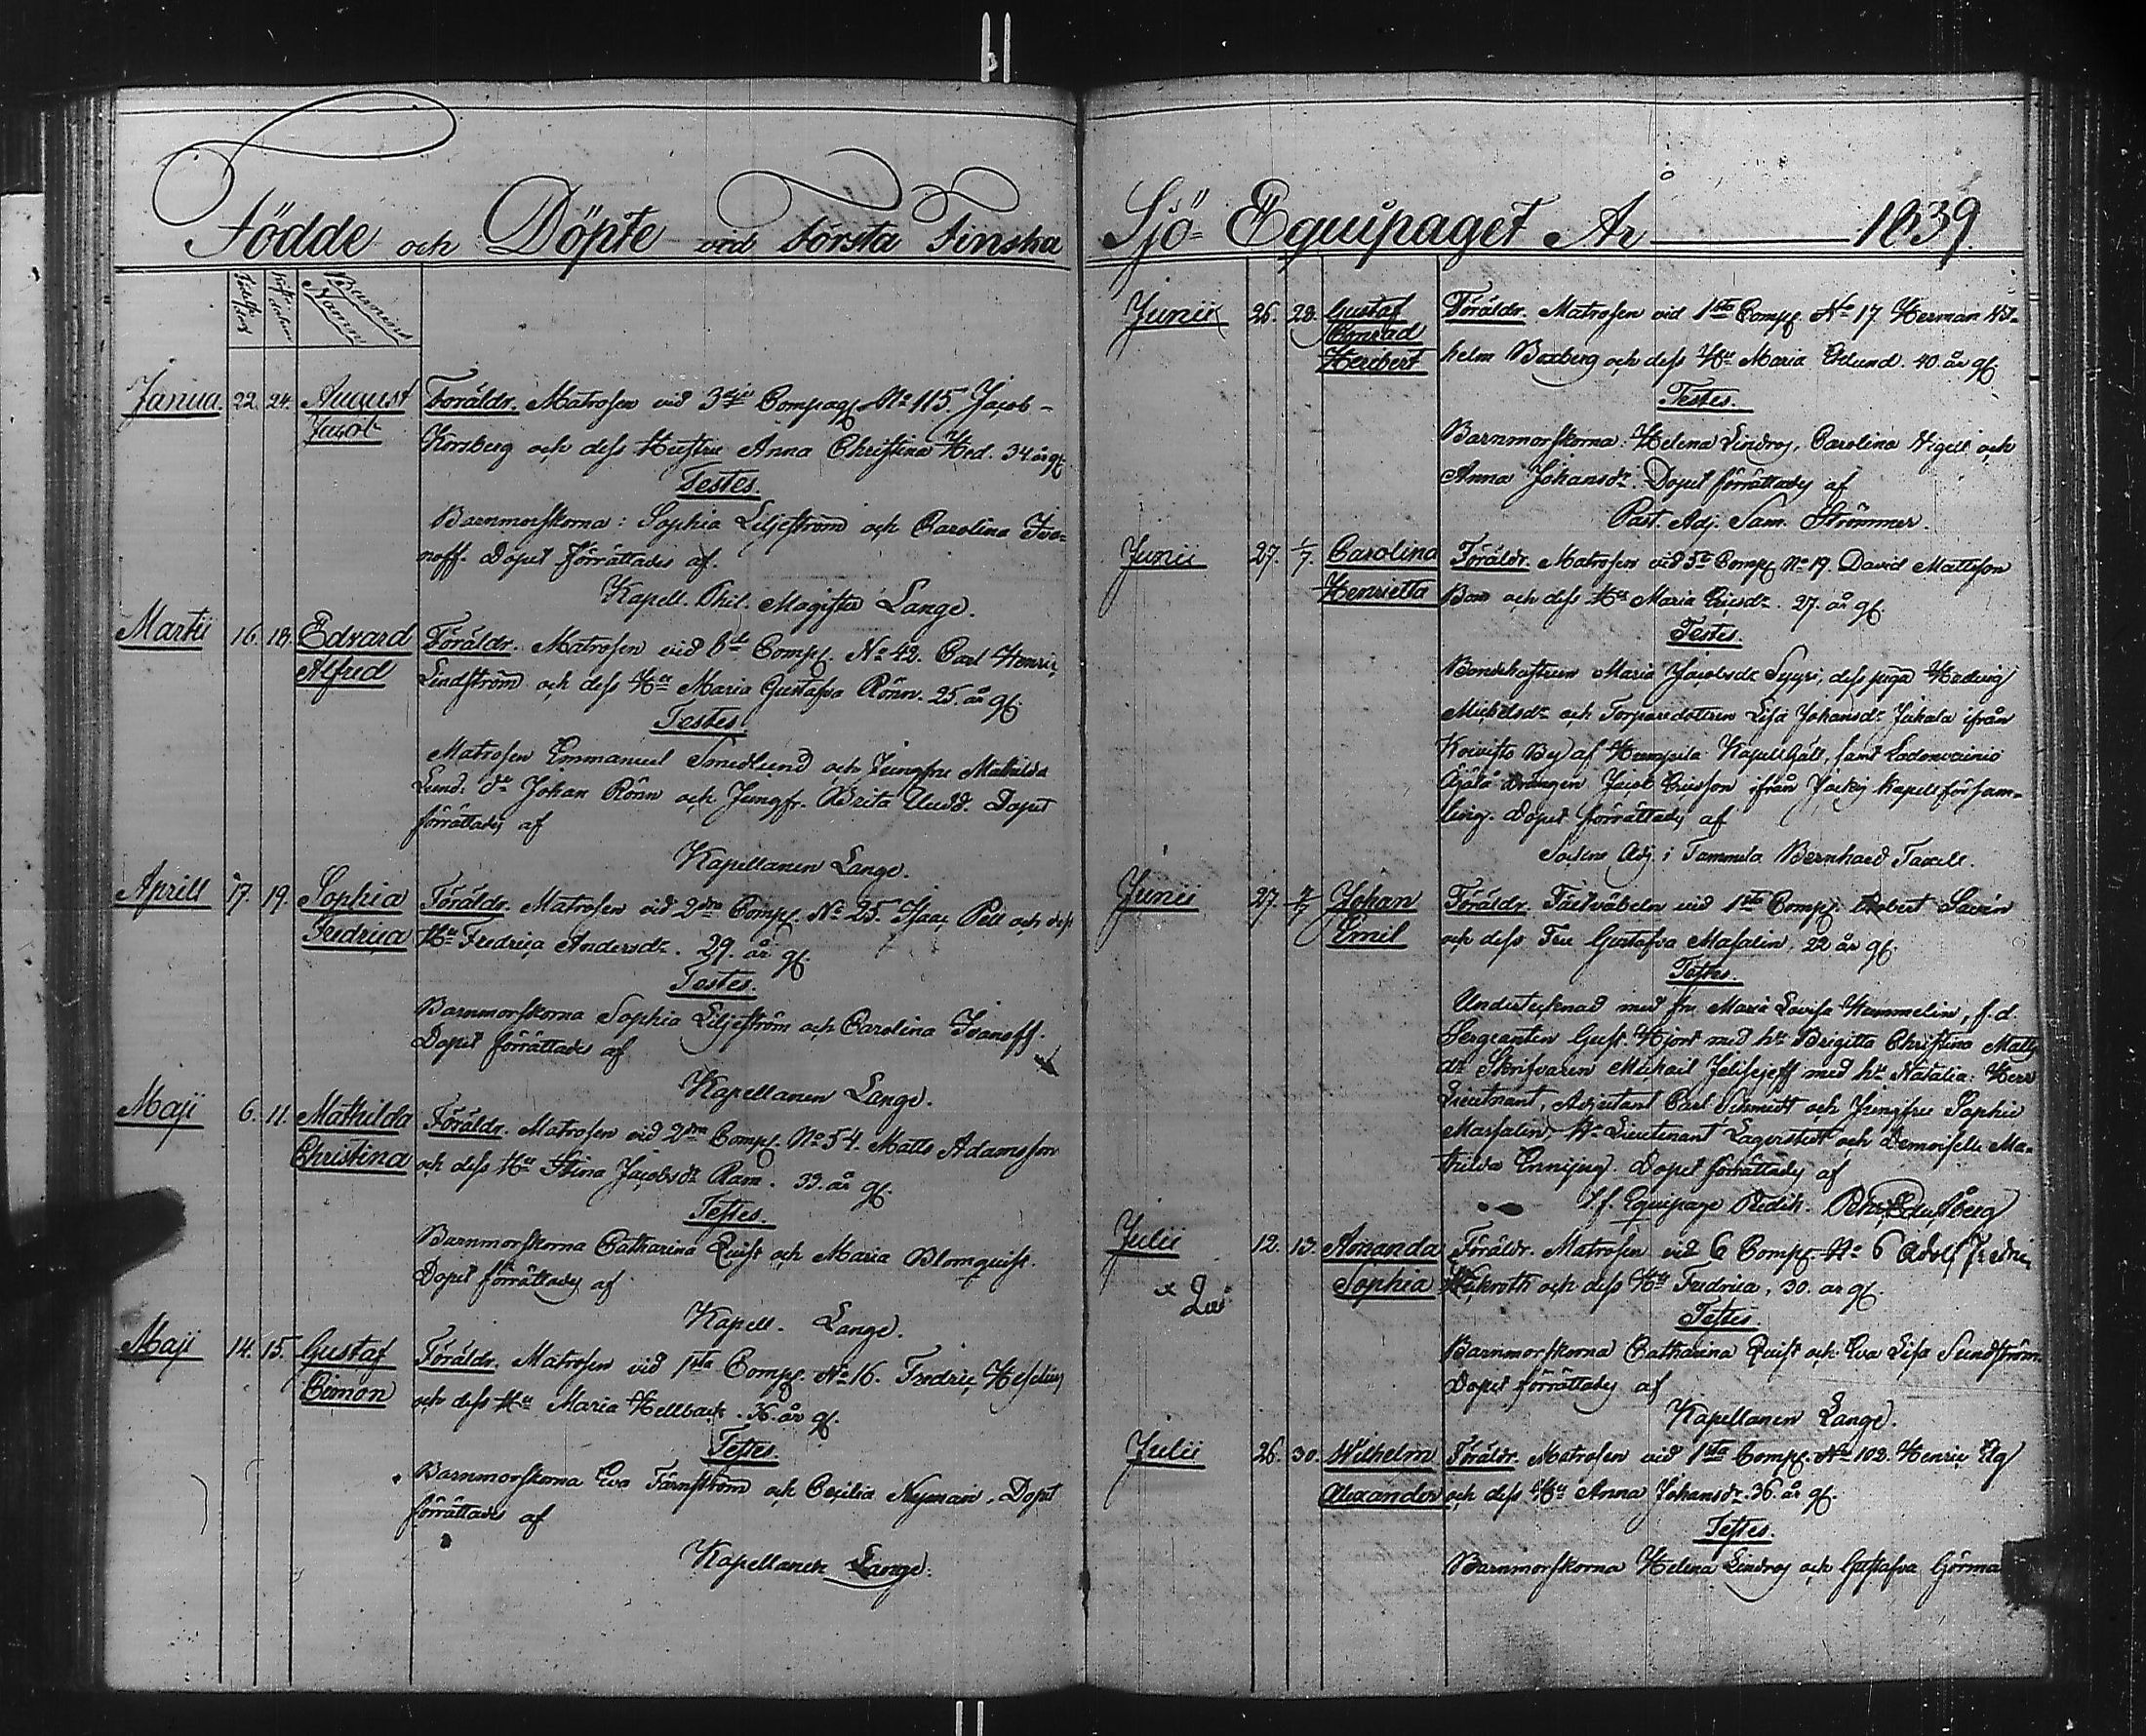 Födde och Döpte vid Första Finska
Födelse dag
Barnens Namn
Janua. 22. 24. August Jacob
Föräldr. Matrosen vid 3dje Compag. No 115. Jacob
Korsberg och dess Hustru Anna Christina Hed. 34. år gl.
Testes.
Barnmorskorna: Sophia Liljeström och Carolina Iva-
noff. Dopet förrättades af.
Kapell. Phil. Magister Lange.
Martii 16. 18. Edvard Alfred
Föräldr. Matrosen vid 6te Comp. No 42. Carl Henric
Lindström och dess Hu Maria Gustafva Rönn. 25. år gl.
Testes.
Matrosen Emmanuel Smedlund och Jungfru Mathilda
Lund. do Johan Rönn och Jungfr. Brita Uudd. Dopet
förrättades af
Kapellanen Lange.
Aprill 17. 19. Sophia Fredrica
Föräldr. Matrosen vid 2dra Comp. No 25. Isaac Pell och dess
Hu Fredrica Andersdr. 29. år gl.
Testes.
Barnmorskorna Sophia Liljeström och Carolina Ivanoff.
Dopet förrättades af
Kapellanen Lange.
Maji 6. 11. Mathilda Christina
Föräldr. Matrosen vid 2dra Comp. No 54. Matts Adamsson
och dess Hu Stina Jacobsdr Ram. 33. år gl.
Testes.
Barnmorskorna Catharina Quist och Maria Blomquist.
Dopet förrättades af
Kapell. Lange.
Maji 14. 15. Gustaf Eimon
Föräldr. Matrosen vid 1sta Comp. No 16. Fredric Heselius
och dess Hu Maria Hellback. 36. år gl.
Testes.
Barnmorskorna Eva Färnström och Cecilia Nyman. Dopet
förrättades af
Kapellanen Lange.
Sjö-Equipaget År 1839.
Junii 26. 28. Gustaf Conrad Heribert
Föräldr. Matrosen vid 1sta Comp. No 17. Herman Wil-
helm Boxberg och dess Hu Maria Edlund. 40. år gl.
Testes.
Barnmorskorna: Helena Lindros, Carolina Nigell och
Anna Johansdr. Dopet förrättades af
Past. Adj. Sam. Strömmer.
Junii 27. 1/7. Carolina Henrietta
Föräldr. Matrosen vid 5te Comp. No 19. David Mattsson
och dess Hu Maria Ericsdr. 27. år gl.
Testes.
Bondehustrun Maria Jacobsdr Syyri, dess piga Hedvig
Michelsdr och Torparedottren Lisa Johansdr Jakala ifrån
Koivisto By af Humppila Kapell Gäll, samt Ladonvainio
drängen Jacob Ericsson ifrån Jockis Kapellförsam-
ling. Dopet förrättades af
Sockne Adj. i Tammela Bernhard Taxell.
Junii 27. 4/7 Johan Emil
Föräldr. Fästväbeln vid 1sta Comp. Robert Savén
och dess Fru Gustafva Masalin, 22 år gl.
Testes.
Undertecknad med fru Maria Lovisa Hammelin, f.d.
Sergeanten Gust. Hjort med hu Brigitta Christina Matts
dr Skrifvaren Michail Jelisejeff med hu Natalia: Herr
Lieutnant, Adjutant Carl Schmidt och Jungfru Sophie
Massalin, Hr Lieutenant Lagerstedt och Demoiselle Ma-
thilda. Dopet förrättades af
t.f. Equipage Predik.
Julii 12. 13. Amanda Sophia
Föräldr. Matrosen vid 6 Comp No 6 Adolf Fredric
och dess Hu Fredrica, 30. år gl.
Testes.
Barnmorskorna Catharina Quist och Eva Lisa Sundström.
Dopet förrättades af
Kapellanen Lange.
Julii 26. 30. Wilhelm Alexander
Föräldr. Matrosen vid 1sta Comp. No 102. Henric Elg
och dess Hu Anna Johansdr. 36. år gl.
Testes.
Barnmorskorna Helena Lindros och Gustafva